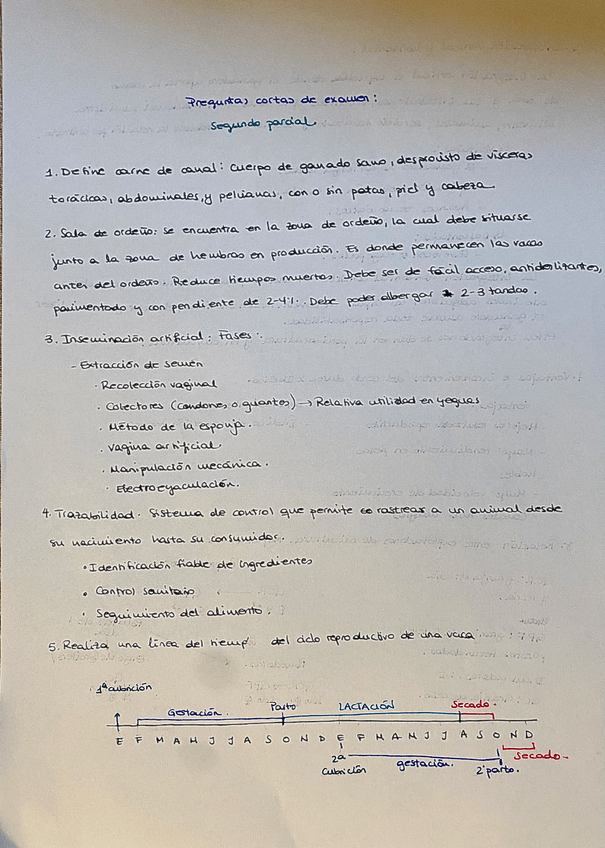 Preguntas cortas de examen:
Segundo parcial.
1. Define carne de canal: Cuerpo de ganado sano, desprovisto de vísceras
torácicas, abdominales, y pelvianas, con o sin patas, piel y cabeza.
2. Sala de ordeño: se encuentra en la zona de ordeño, la cual debe situarse
junto a la zona de hembras en producción. Es donde permanecen las vacas
antes del ordeño. Reduce tiempos muertos. Debe ser de fácil acceso, antideslizantes,
pavimentado y con pendiente de 2-4%. Debe poder albergar 2-3 tandas.
3. Inseminación artificial: Fases:
- Extracción de semen
· Recolección vaginal
· Colectores (condones o guantes) → Relativa utilidad en yeguas
· Método de la esponja.
· Vagina artificial
· Manipulación mecánica.
· Electroeyaculación.
4. Trazabilidad. Sistema de control que permite rastrear a un animal desde
su nacimiento hasta su consumidor.
· Identificación fiable de ingredientes
· Control sanitario
· Seguimiento del alimento.
5. Realiza una línea del tiemp del ciclo reproductivo de una vaca
1ª cubrición
Gestación. Parto LACTACIÓN Secado.
E F M A M J J A S O N D E F M A M J J A S O N D
2ª cubrición gestación. 2º parto. Secado.